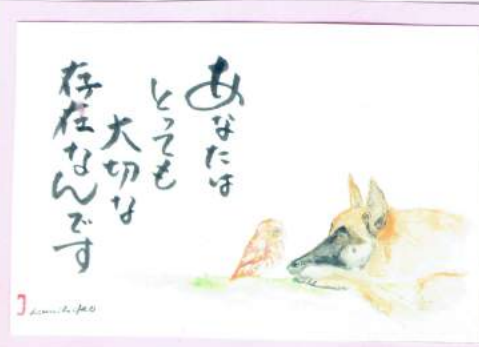 あなたは
とっても
大切な
存在なんです